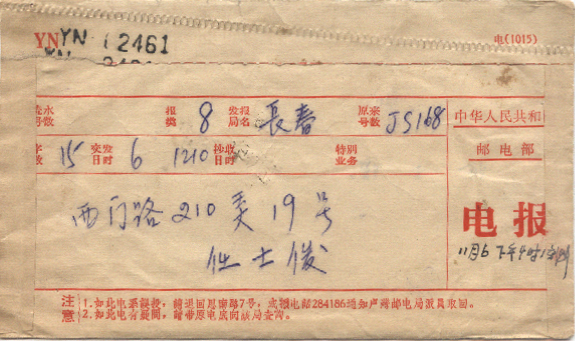 YN YN 12461 电(1015)
流水号数 报类 8 发报局名 長春 原来号数 JS168 中华人民共和
字数 15 交发日时 6 1210 抄收日时 特别业务 邮电部
西门路210弄19号
任士俊
电报
11月6 下午4时
注意 1.如此电系误投,请退回思南路7号,或拨电部284186通知卢湾邮电局派员取回。
2.如此电有疑问,请带原电或向该局查询。